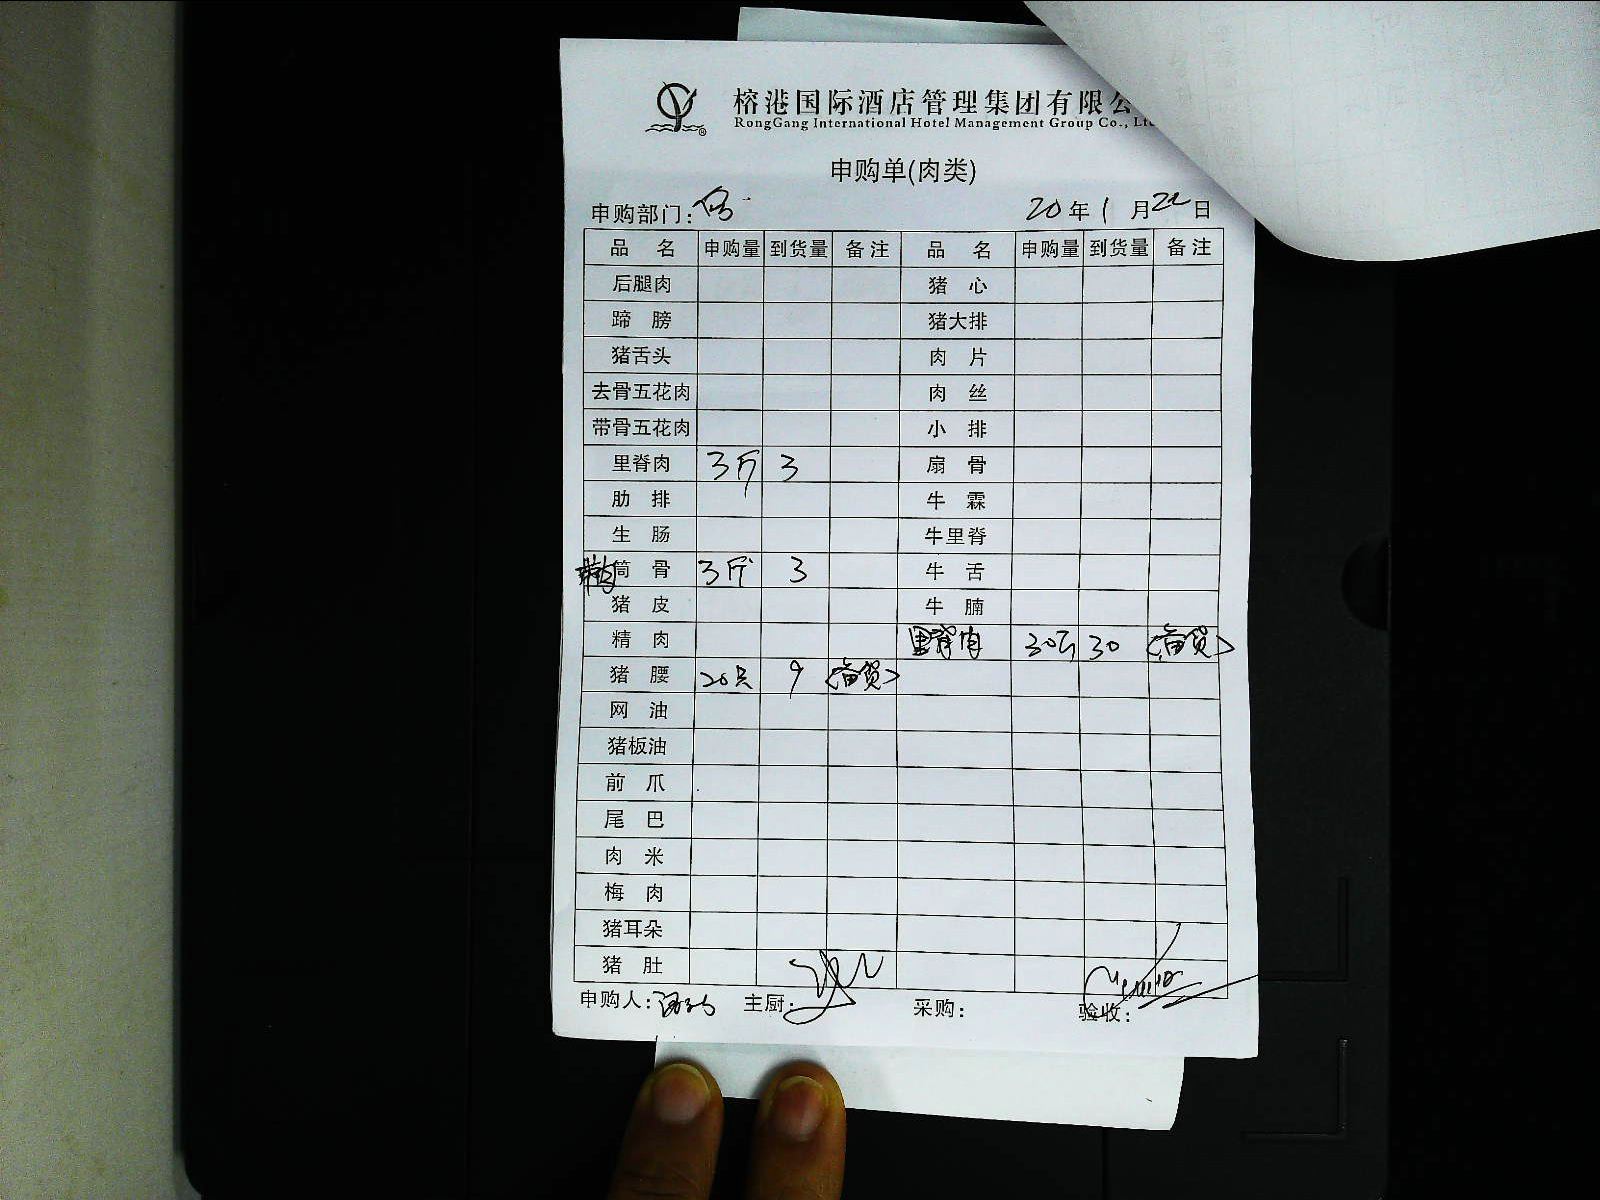 榕港国际酒店管理集团有限公
RongGang International Hotel Management Group Co., Lt
申购单(肉类)
申购部门: 20年1月22日
品名 申购量 到货量 备注 品名 申购量 到货量 备注
后腿肉 猪心
蹄膀 猪大排
猪舌头 肉片
去骨五花肉 肉丝
带骨五花肉 小排
里脊肉 3斤 3 扇骨
肋排 牛霖
生肠 牛里脊
带肉筒骨 3斤 3 牛舌
猪皮 牛腩
精肉 里脊肉 30斤 30 (备货)
猪腰 20只 9 (备货)
网油
猪板油
前爪
尾巴
肉米
梅肉
猪耳朵
猪肚
申购人: 主厨: 采购: 验收: